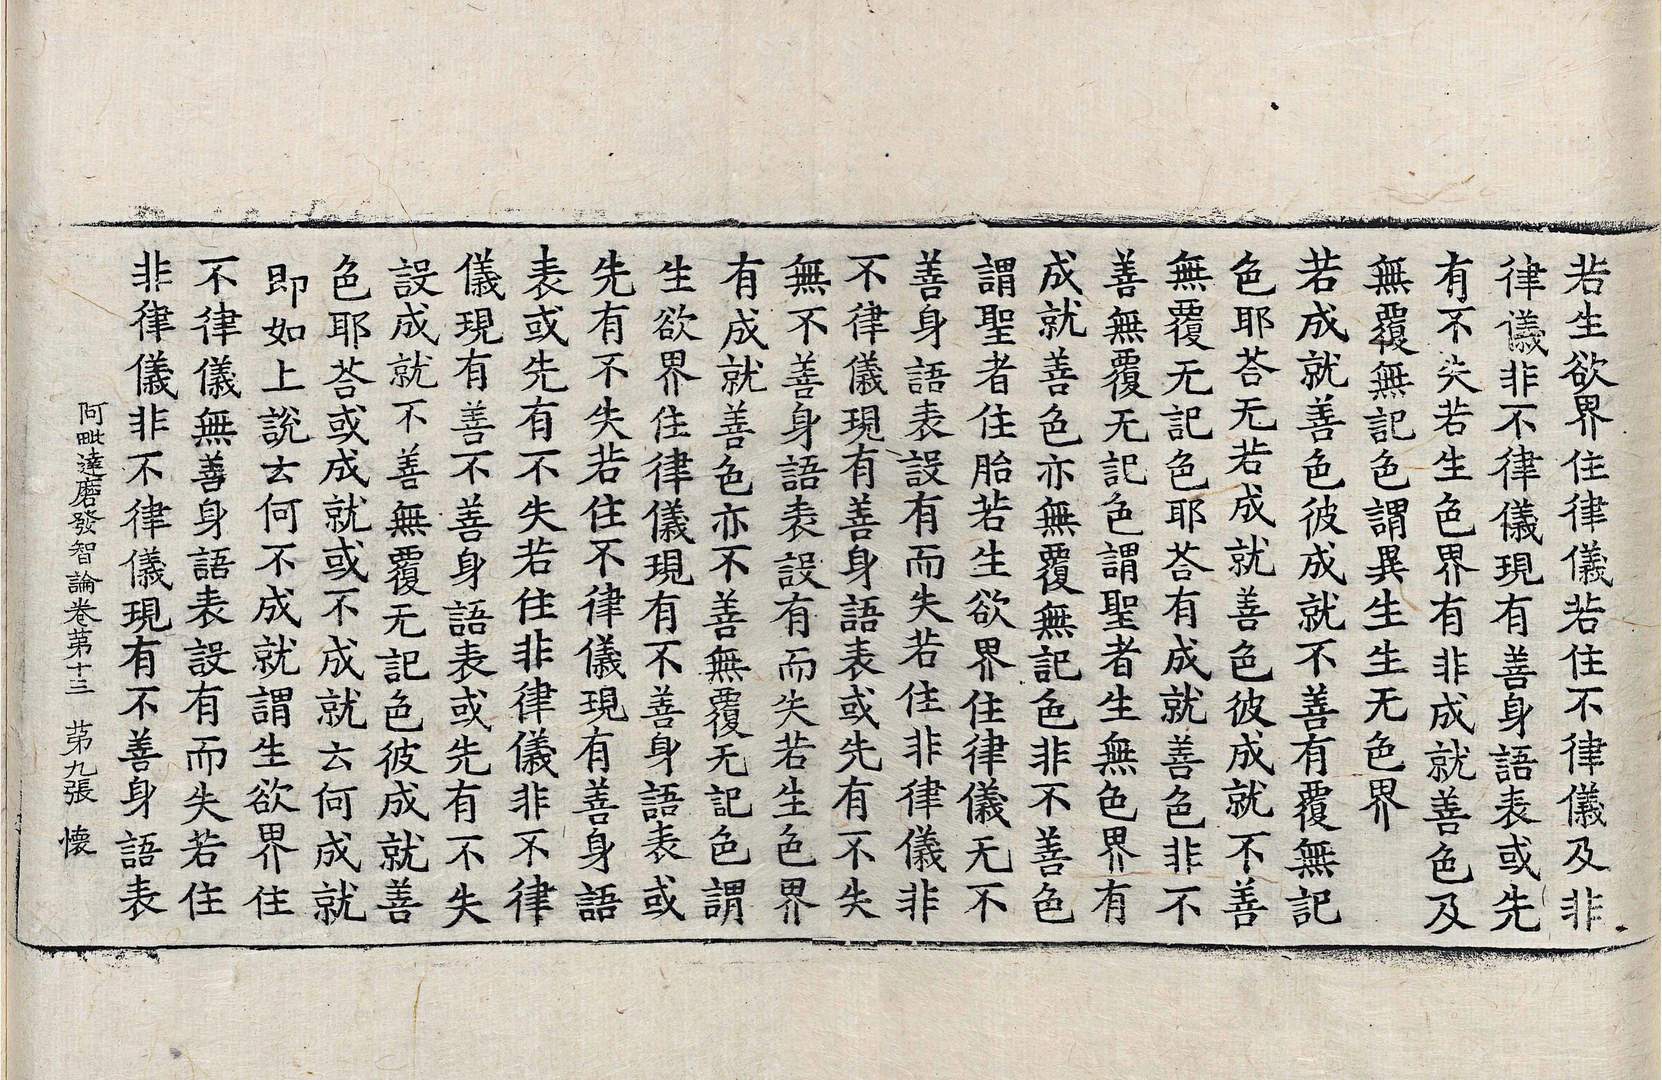 若生欲界住律儀若住不律儀及非
律儀非不律儀現有善身語表或先
有不失若生色界有非成就善色及
無覆無記色謂異生生无色界
若成就善色彼成就不善有覆無記
色耶荅无若成就善色彼成就不善
無覆无記色耶荅有成就善色非不
善無覆无記色謂聖者生無色界有
成就善色亦無覆無記色非不善色
謂聖者住胎若生欲界住律儀无不
善身語表設有而失若住非律儀非
不律儀現有善身語表或先有不失
無不善身語表設有而失若生色界
有成就善色亦不善無覆无記色謂
生欲界住律儀現有不善身語表或
先有不失若住不律儀現有善身語
表或先有不失若住非律儀非不律
儀現有善不善身語表或先有不失
設成就不善無覆无記色彼成就善
色耶荅或成就或不成就云何成就
即如上說云何不成就謂生欲界住
不律儀無善身語表設有而失若住
非律儀非不律儀現有不善身語表
阿毗達磨發智論卷第十三　苐九張　懷